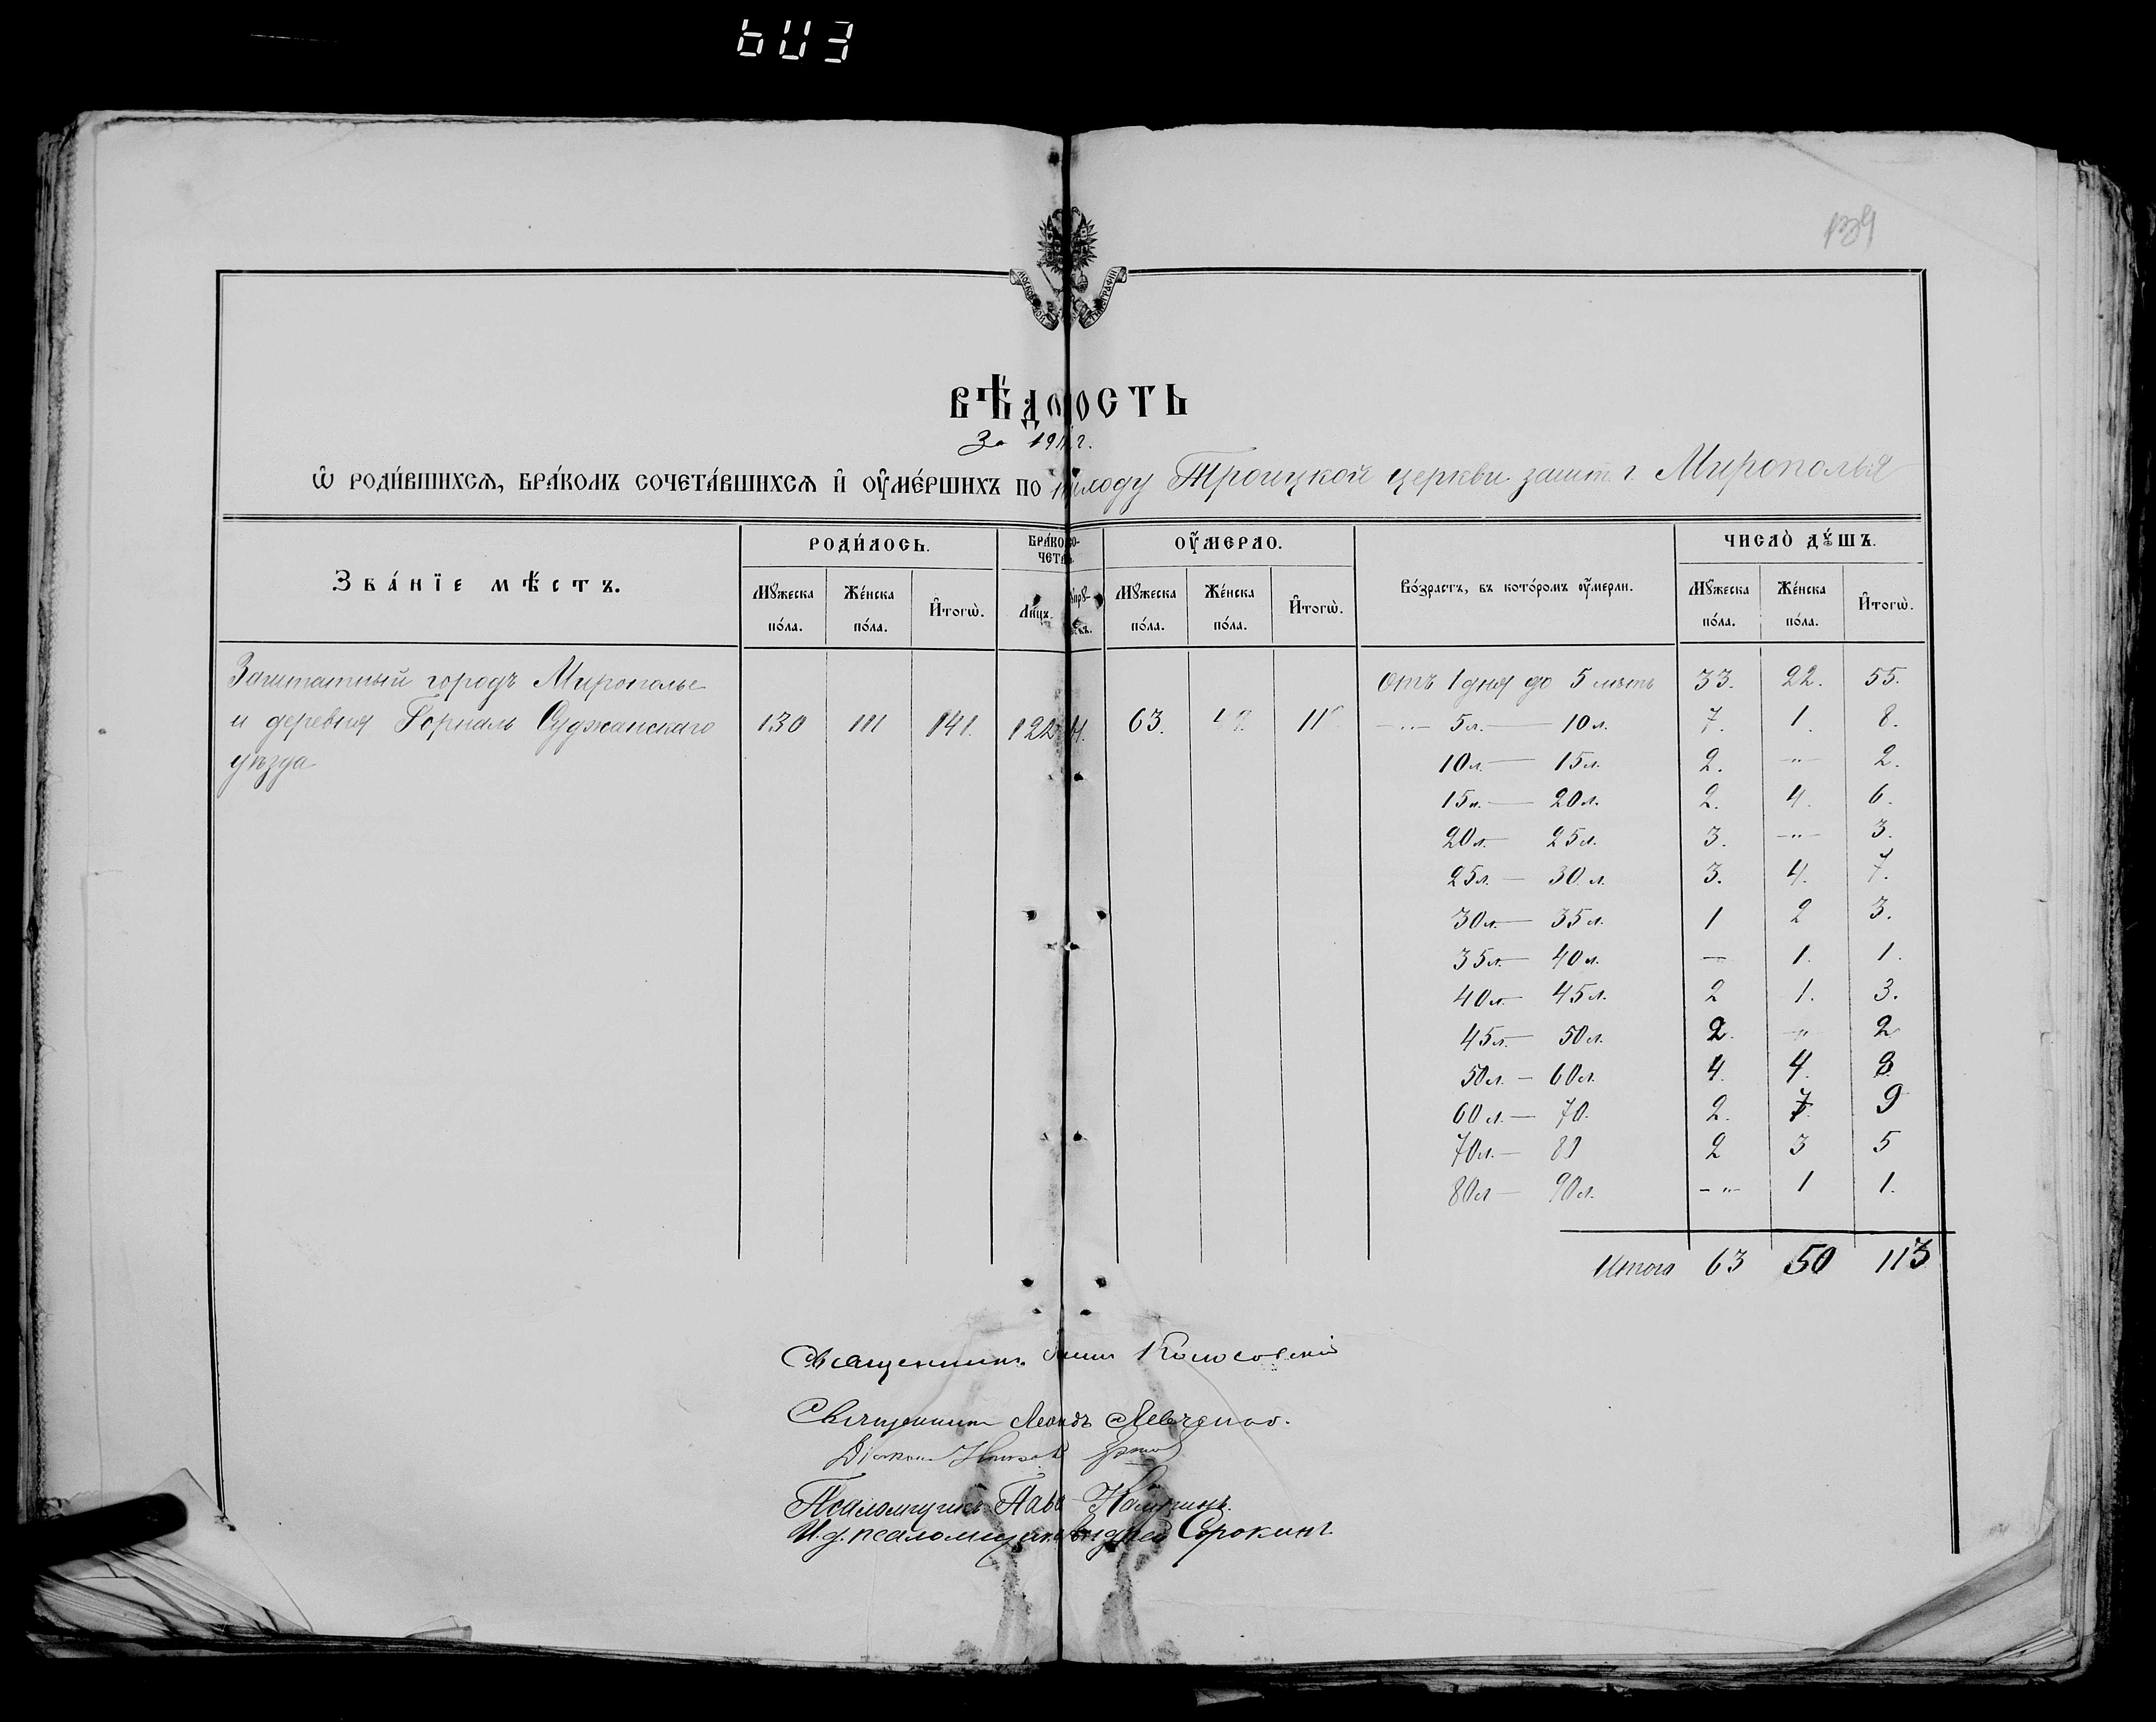 603
134
МОСКОВСКОЙ ТИПОГРАФІИ
ВѢДОМОСТЬ
За 191 г.
Ѡ РОДИ́ВШИХСѦ, БРА́КОМЪ СОЧЕТА́ВШИХСѦ И҆ ОУ҆МЕ́РШИХЪ ПО приходу Троицкой церкви зашт. г. Мирополья
Зва́нїе мѣ́стъ.
РОДИ́ЛОСЬ.
БРА́КО СО-
ЧЕТА
ОУ҆МЕРЛО.
Во́зрастъ, въ кото́ромъ оу҆мерли.
ЧИСЛО̀ ДꙊШЪ.
Мꙋ́жеска по́ла.
Же́нска по́ла.
И҆тогѡ̀.
Ли́цъ.
Мꙋ́жеска по́ла.
Же́нска по́ла.
И҆тогѡ̀.
Мꙋ́жеска по́ла.
Же́нска по́ла.
И҆тогѡ̀.
Заштатный городъ Мирополье
и деревня Горналь Суджанскаго
уѣзда
130 111 141. 122 63. 11
Отъ 1 дня до 5 лѣтъ 33. 22. 55.
—„— 5 л. — 10 л. 7. 1. 8.
10 л. — 15 л. 2. —„— 2.
15 л. — 20 л. 2. 4. 6.
20 л. — 25 л. 3. —„— 3.
25 л. — 30 л. 3. 4. 7.
30 л. — 35 л. 1 2 3.
35 л. — 40 л. — 1. 1.
40 л. — 45 л. 2 1. 3.
45 л. — 50 л. 2. —„— 2
50 л. — 60 л. 4. 4. 8.
60 л. — 70. 2. 7. 9
70 л. — 80 2 3 5
80 л — 90 л. —„— 1 1.
Итого 63 50 113
Священникъ Колосовскій
Священникъ Леонидъ Левченко.
Діаконъ
Псаломщикъ Павелъ
И. д. псаломщика Андрей Сорокинъ.